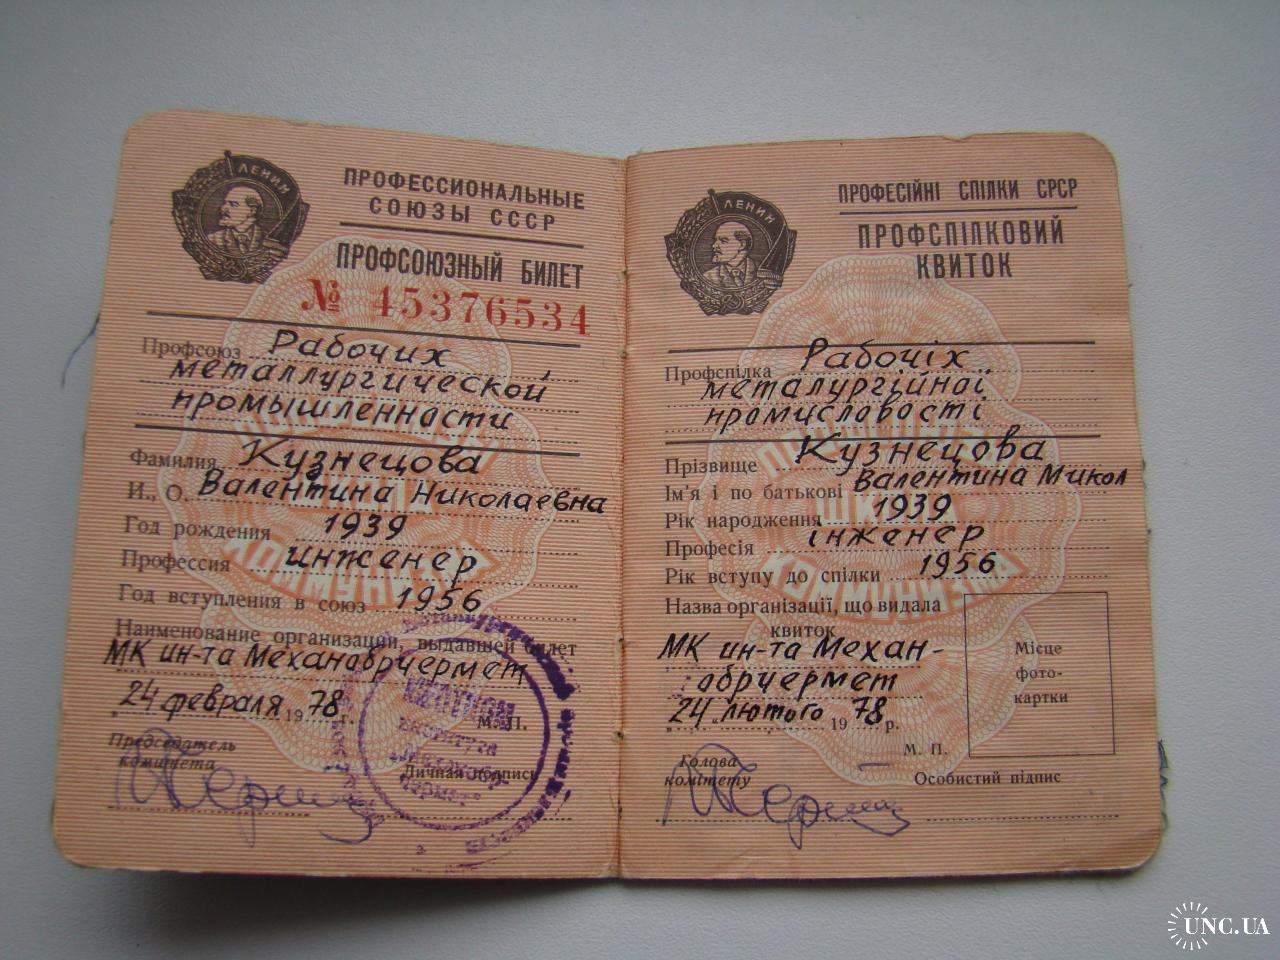 ЛЕНИН
ПРОФЕССИОНАЛЬНЫЕ
СОЮЗЫ СССР
ПРОФСОЮЗНЫЙ БИЛЕТ
№ 45376534
Профсоюз Рабочих
металлургической
промышленности
Фамилия Кузнецова
И., О. Валентина Николаевна
Год рождения 1939
Профессия инженер
Год вступления в союз 1956
Наименование организации, выдавшей билет
МК ин-та Механобрчермет
"24" февраля 1978 г.
М. П.
Председатель
комитета
Личная подпись
ЛЕНИН
ПРОФЕСІЙНІ СПІЛКИ СРСР
ПРОФСПІЛКОВИЙ
КВИТОК
Профспілка Рабочіх
металургійної
промисловості
Прізвище Кузнецова
Ім'я і по батькові Валентина Микол
Рік народження 1939
Професія інженер
Рік вступу до спілки 1956
Назва організації, що видала
квиток
МК ин-та Механ-
обрчермет
"24" лютого 1978 р.
Місце
фото-
картки
М. П.
Голова
комітету
Особистий підпис
UNC.UA